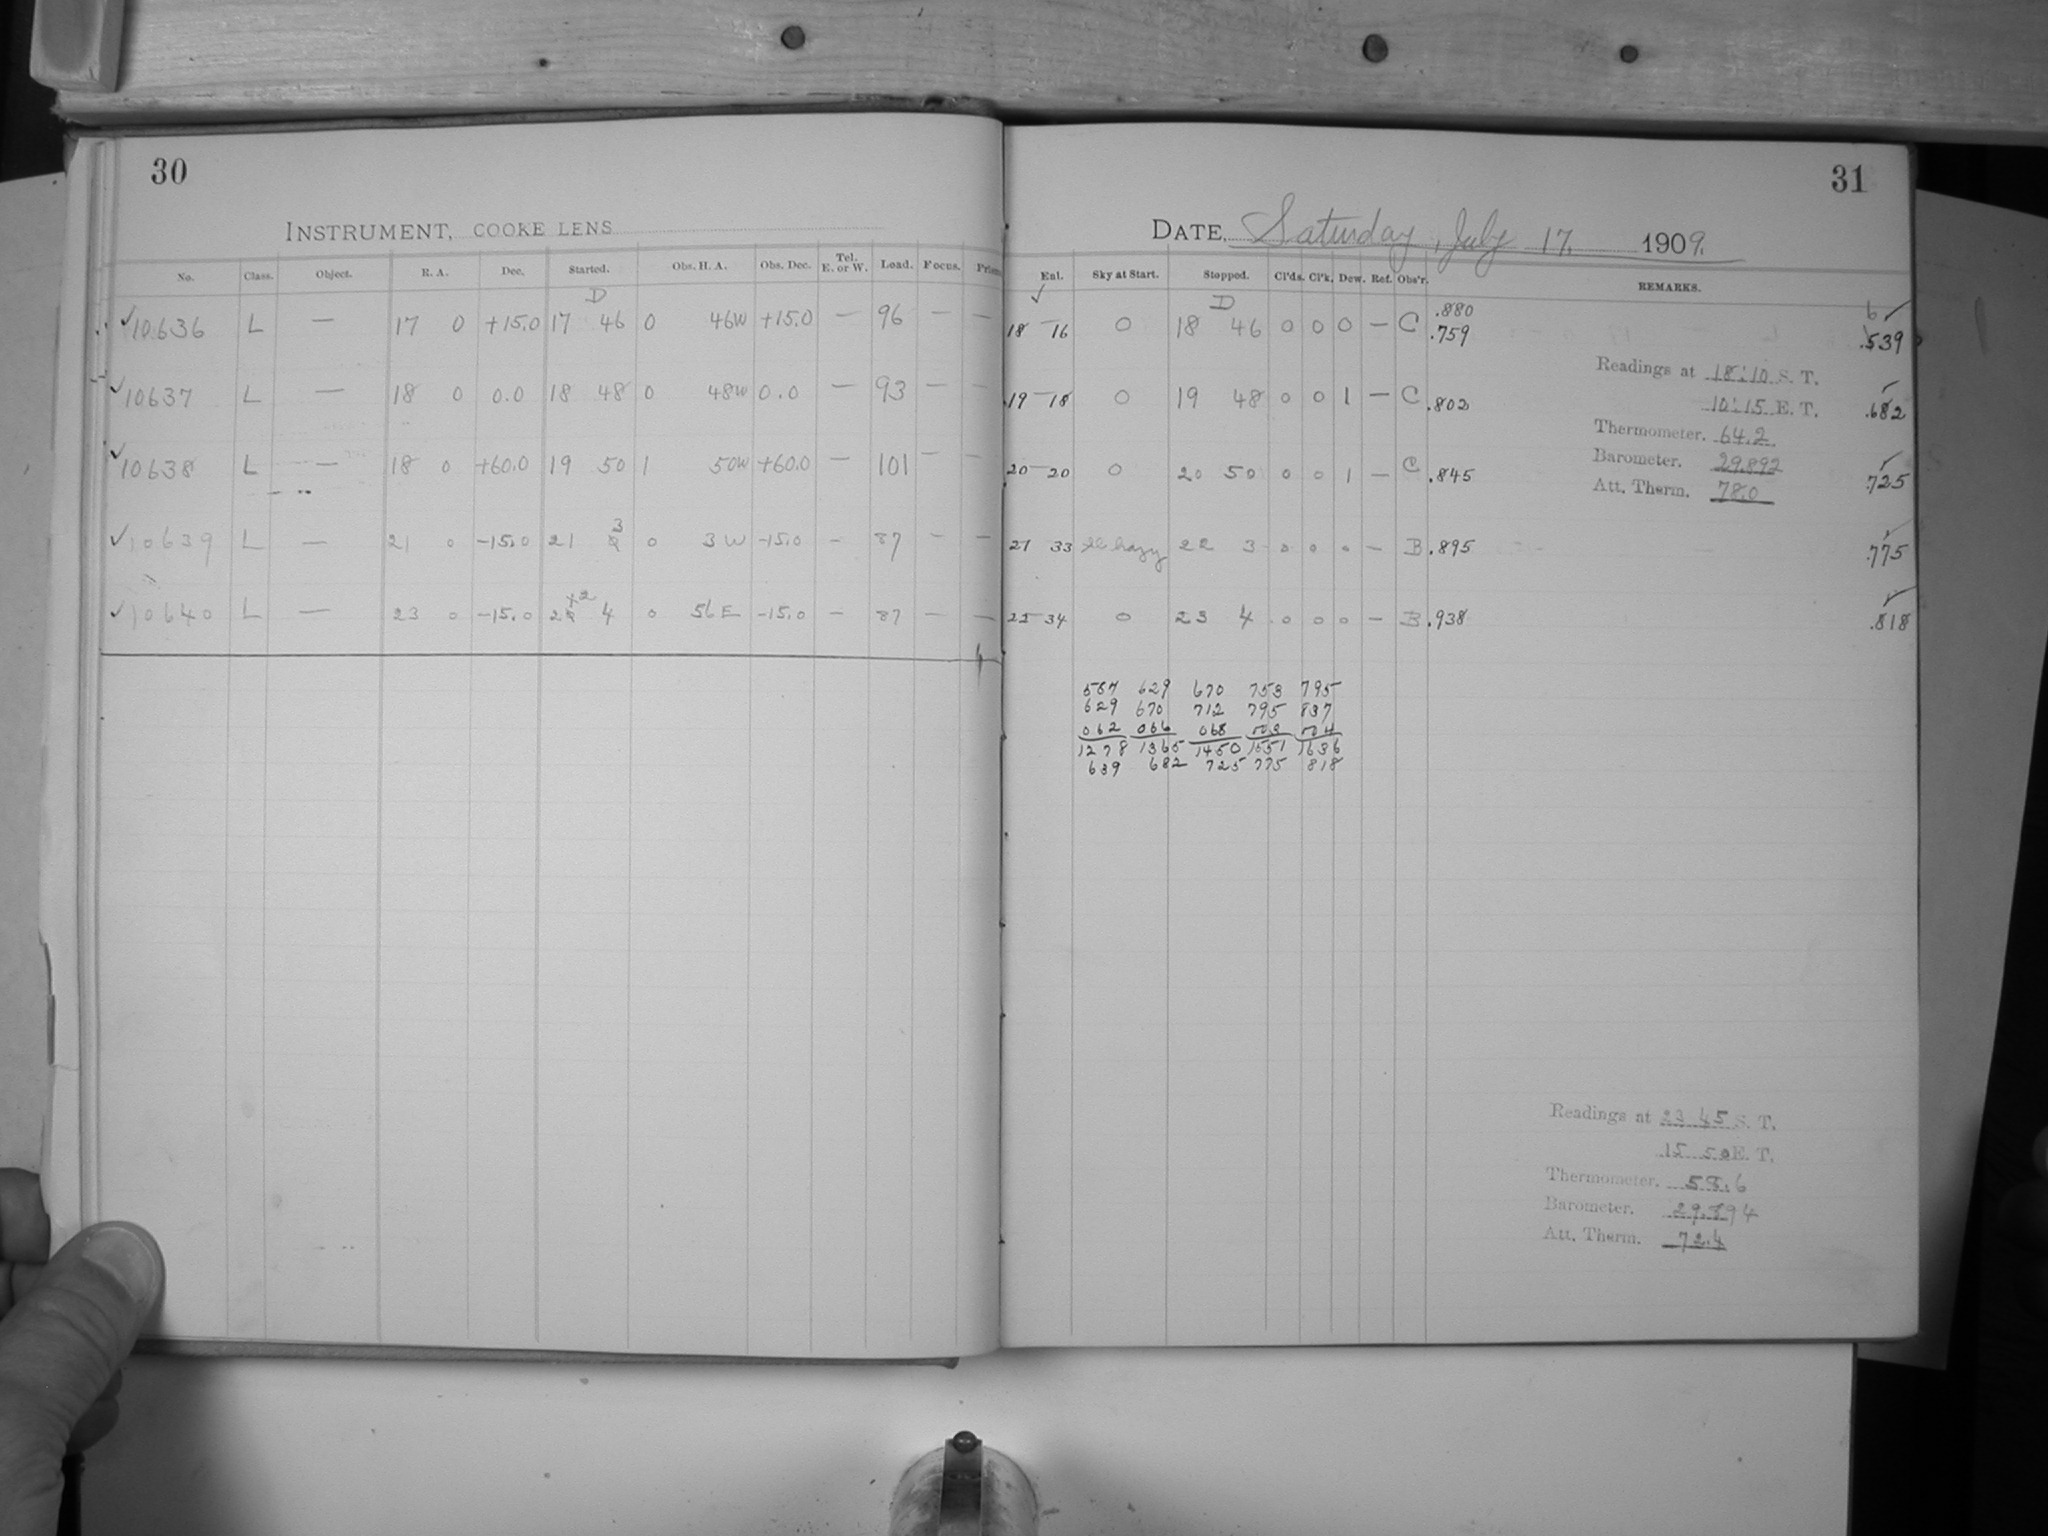 30
INSTRUMENT, COOKE LENS
No. Class. Object. R. A. Dec. Started. Obs. H. A. Obs. Dec. Tel. E. or W. Load. Focus. Prism
D
✓10636 L — 17 0 +15.0 17 46 0 46W +15.0 — 96 — —
✓10637 L — 18 0 0.0 18 48 0 48W 0.0 — 93 — —
✓10638 L — 18 0 +60.0 19 50 1 50W +60.0 — 101 — —
✓10639 L — 21 0 -15.0 21 3 0 3W -15.0 — 87 — —
✓10640 L — 23 0 -15.0 22 4 0 56E -15.0 — 87 — —
31
DATE, Saturday, July 17. 1909.
Eal. Sky at Start. Stopped. Cl'ds. Cl'k. Dew. Ref. Obs'r. REMARKS.
✓ D .880 6 ✓
18 16 0 18 46 0 0 0 — C .759 .539
Readings at 18:10 S. T.
19 18 0 19 48 0 0 1 — C .802 10:15 E. T. .682
Thermometer. 64.2
Barometer. 29.892
20 20 0 20 50 0 0 1 — C .845 .725
Att. Therm. 78.0
21 33 hazy 22 3 0 0 0 — B .895 .775
22 34 0 23 4 0 0 0 — B .938 .818
587 629 670 753 795
629 670 712 795 837
062 066 068 003 004
1278 1365 1450 1551 1636
639 682 725 775 818
Readings at 23 45 S. T.
15 50 E. T.
Thermometer. 58.6
Barometer. 29.894
Att. Therm. 72.4